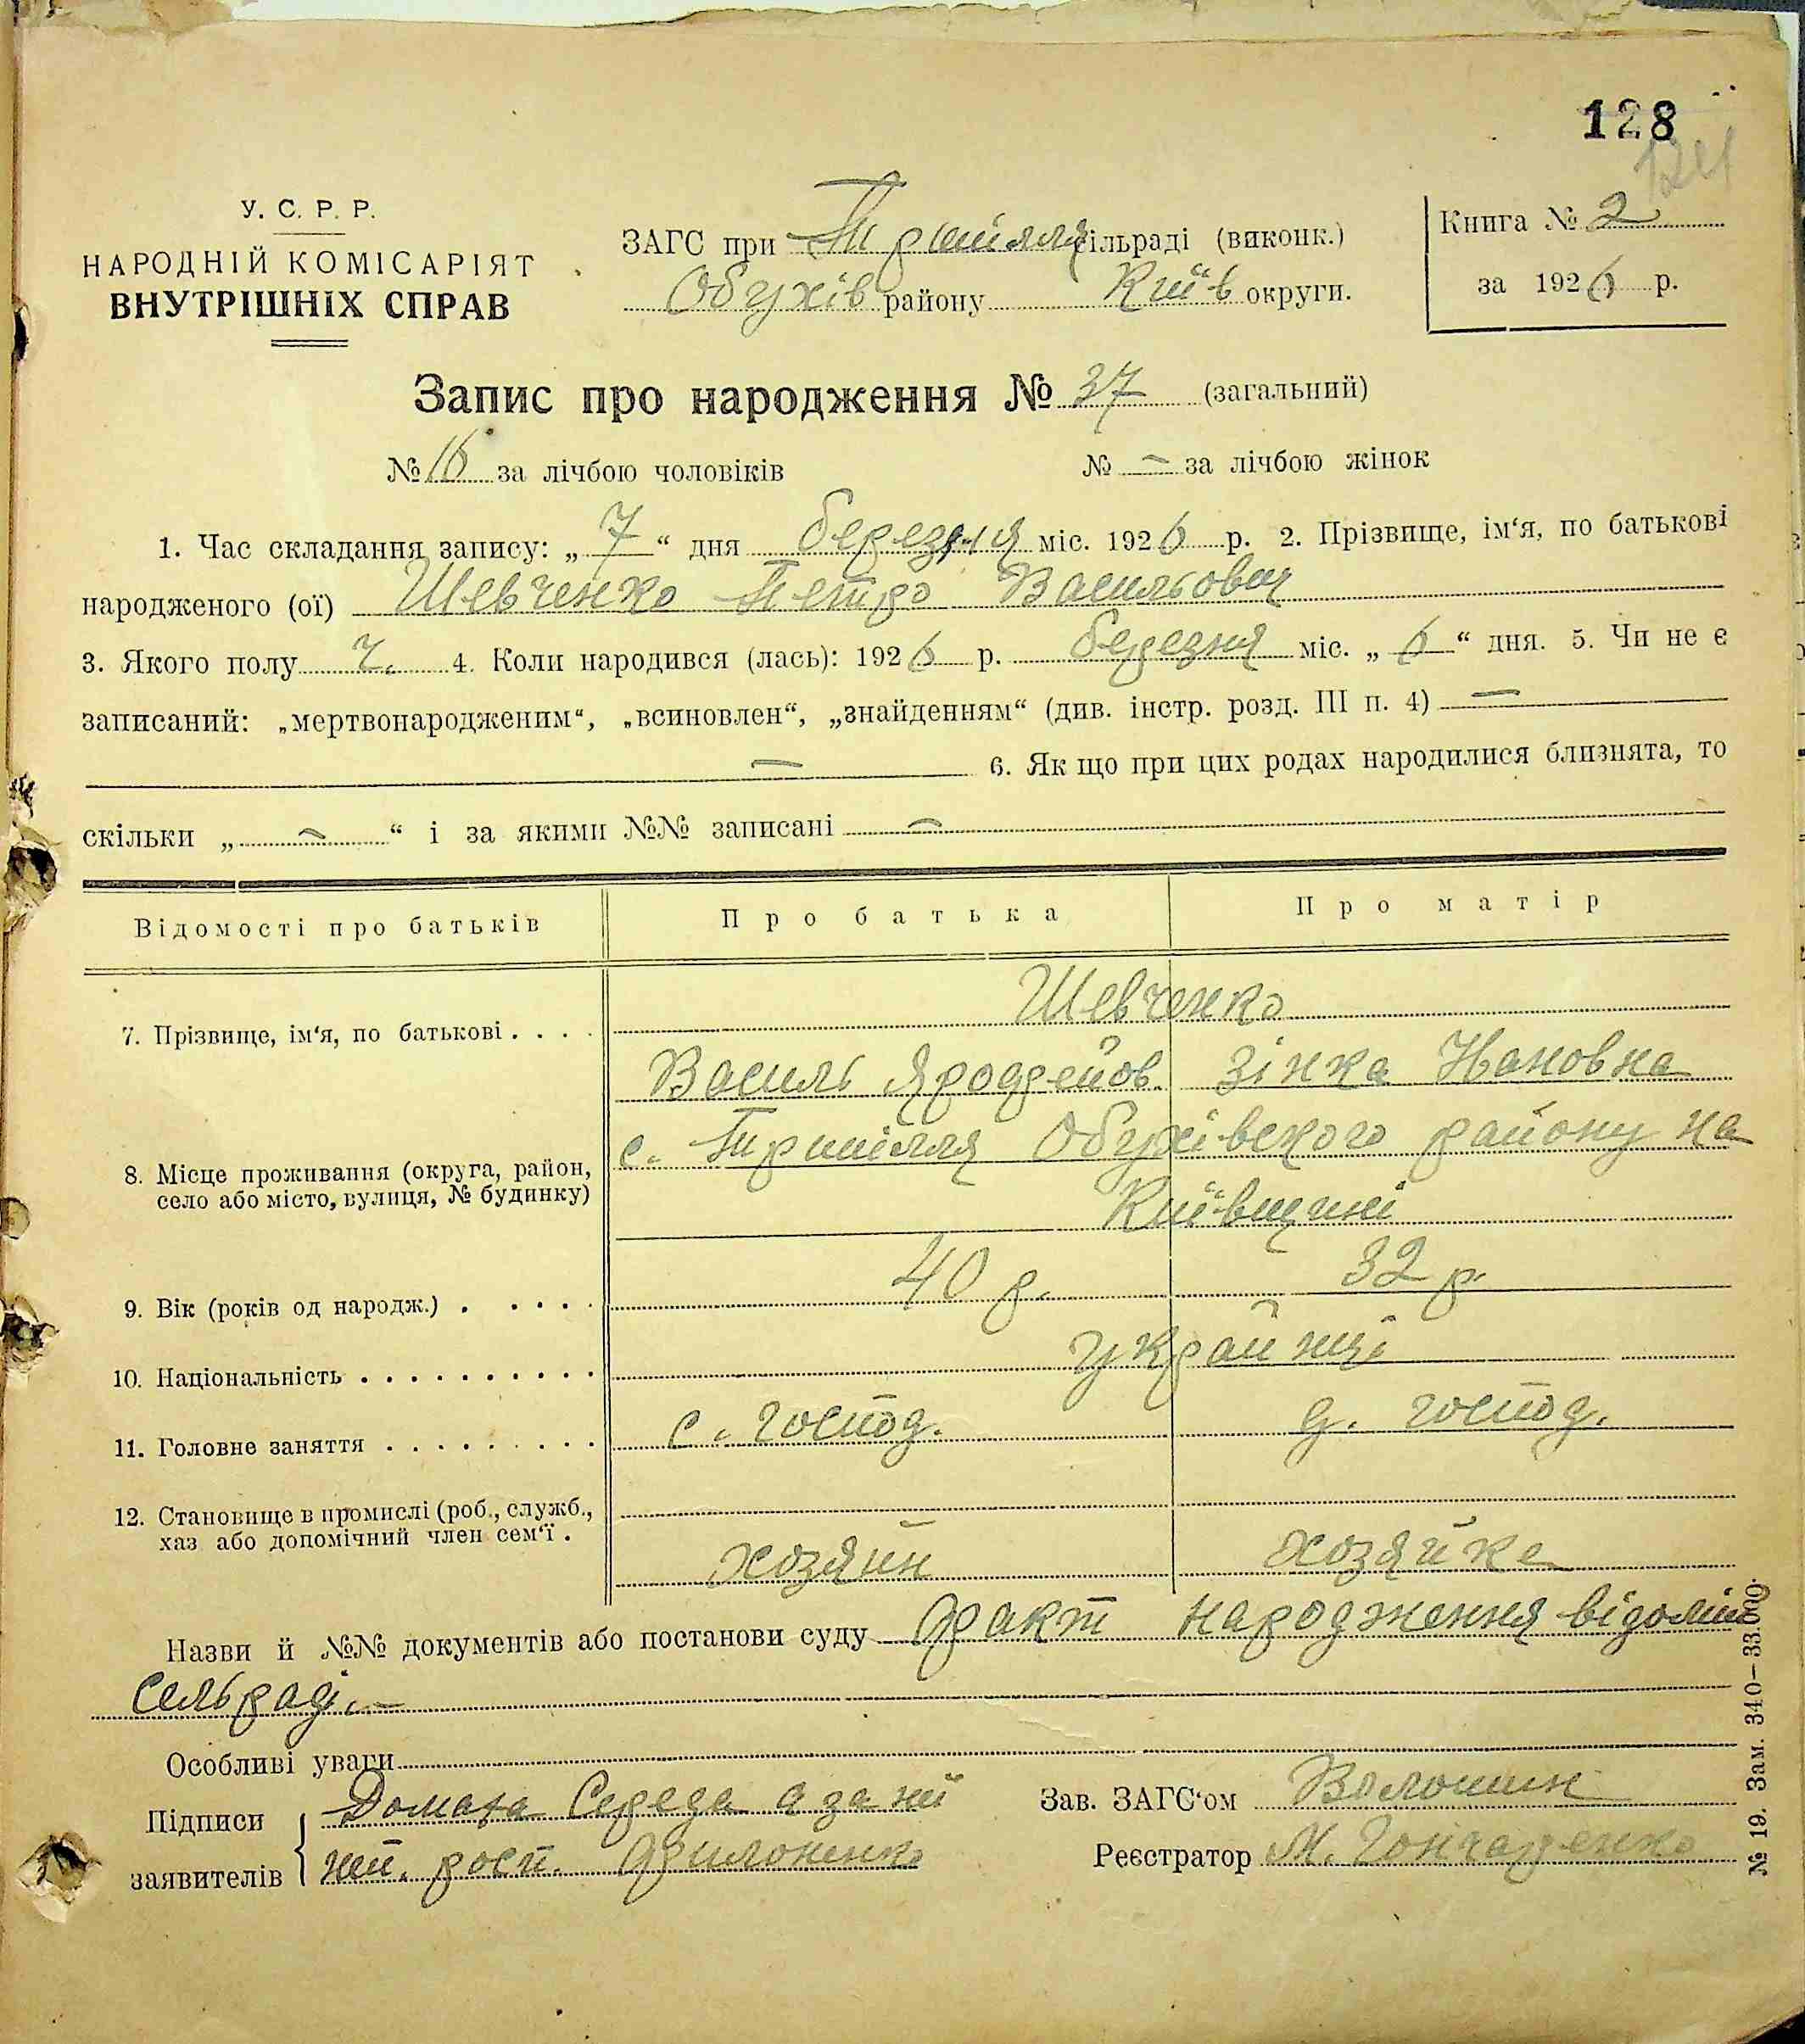 128
124
У. С. Р. Р.
НАРОДНІЙ КОМІСАРІЯТ
ВНУТРІШНІХ СПРАВ
ЗАГС при Трипілля сільраді (виконк.)
Обухів району Київ округи.
Книга № 2
за 1926 р.
Запис про народження № 37 (загальний)
№ 16 за лічбою чоловіків № — за лічбою жінок
1. Час складання запису: „ 7 “ дня березня міс. 1926 р. 2. Прізвище, ім‘я, по батькові
народженого (ої) Шевченко Петро Васильович
3. Якого полу ч. 4. Коли народився (лась): 1926 р. березня міс. „ 6 “ дня. 5. Чи не є
записаний: „мертвонародженим“, „всиновлен“, „знайденням“ (див. інстр. розд. III п. 4) —
— 6. Як що при цих родах народилися близнята, то
скільки „ — “ і за якими №№ записані —
Відомості про батьків Про батька Про матір
Шевченко
7. Прізвище, ім‘я, по батькові . . . .
Василь Зінка
с. Трипілля Обухівского району на
8. Місце проживання (округа, район,
село або місто, вулиця, № будинку)
Київщині
9. Вік (років од народж.) . . . . . 40 р. 32 р.
10. Національність . . . . . . . . . . українці
11. Головне заняття . . . . . . . . . с. господ. д. господ.
12. Становище в промислі (роб., служб.,
хаз або допомічний член сем‘ї .
хозяин хозяйке
Назви й №№ документів або постанови суду факт народження відомий
сельраді. —
Особливі уваги
Підписи заявителів
Домаха Середа а за неї
неп. росп. Филоненко
Зав. ЗАГС‘ом Волошин
Реєстратор М. Гончаренко
№ 19. Зам. 340—33.000.